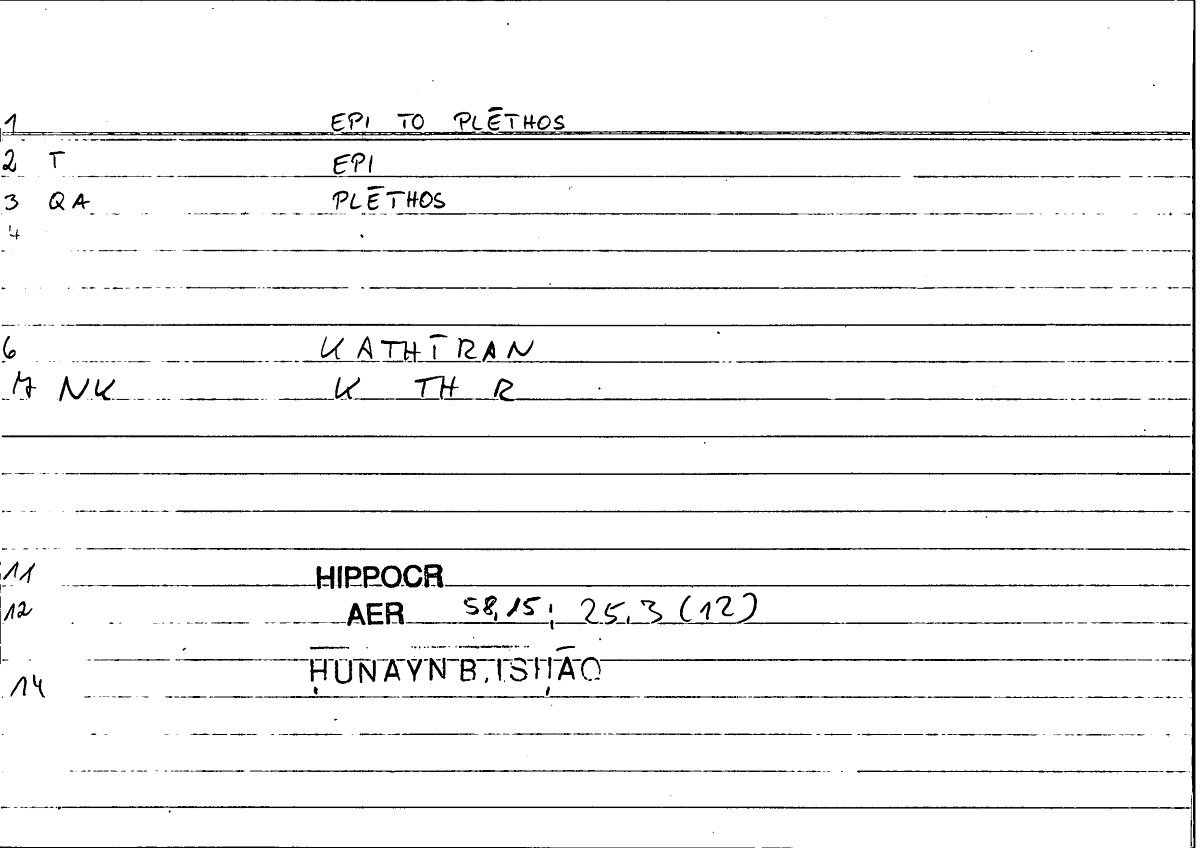 1 EPI TO PLĒTHOS
2 T EPI
3 QA PLĒTHOS
4
6 KATHĪRAN
7 NK K TH R
11 HIPPOCR
12 AER 58,15; 25,3 (12)
14 ḤUNAYN B. ISḤĀQ